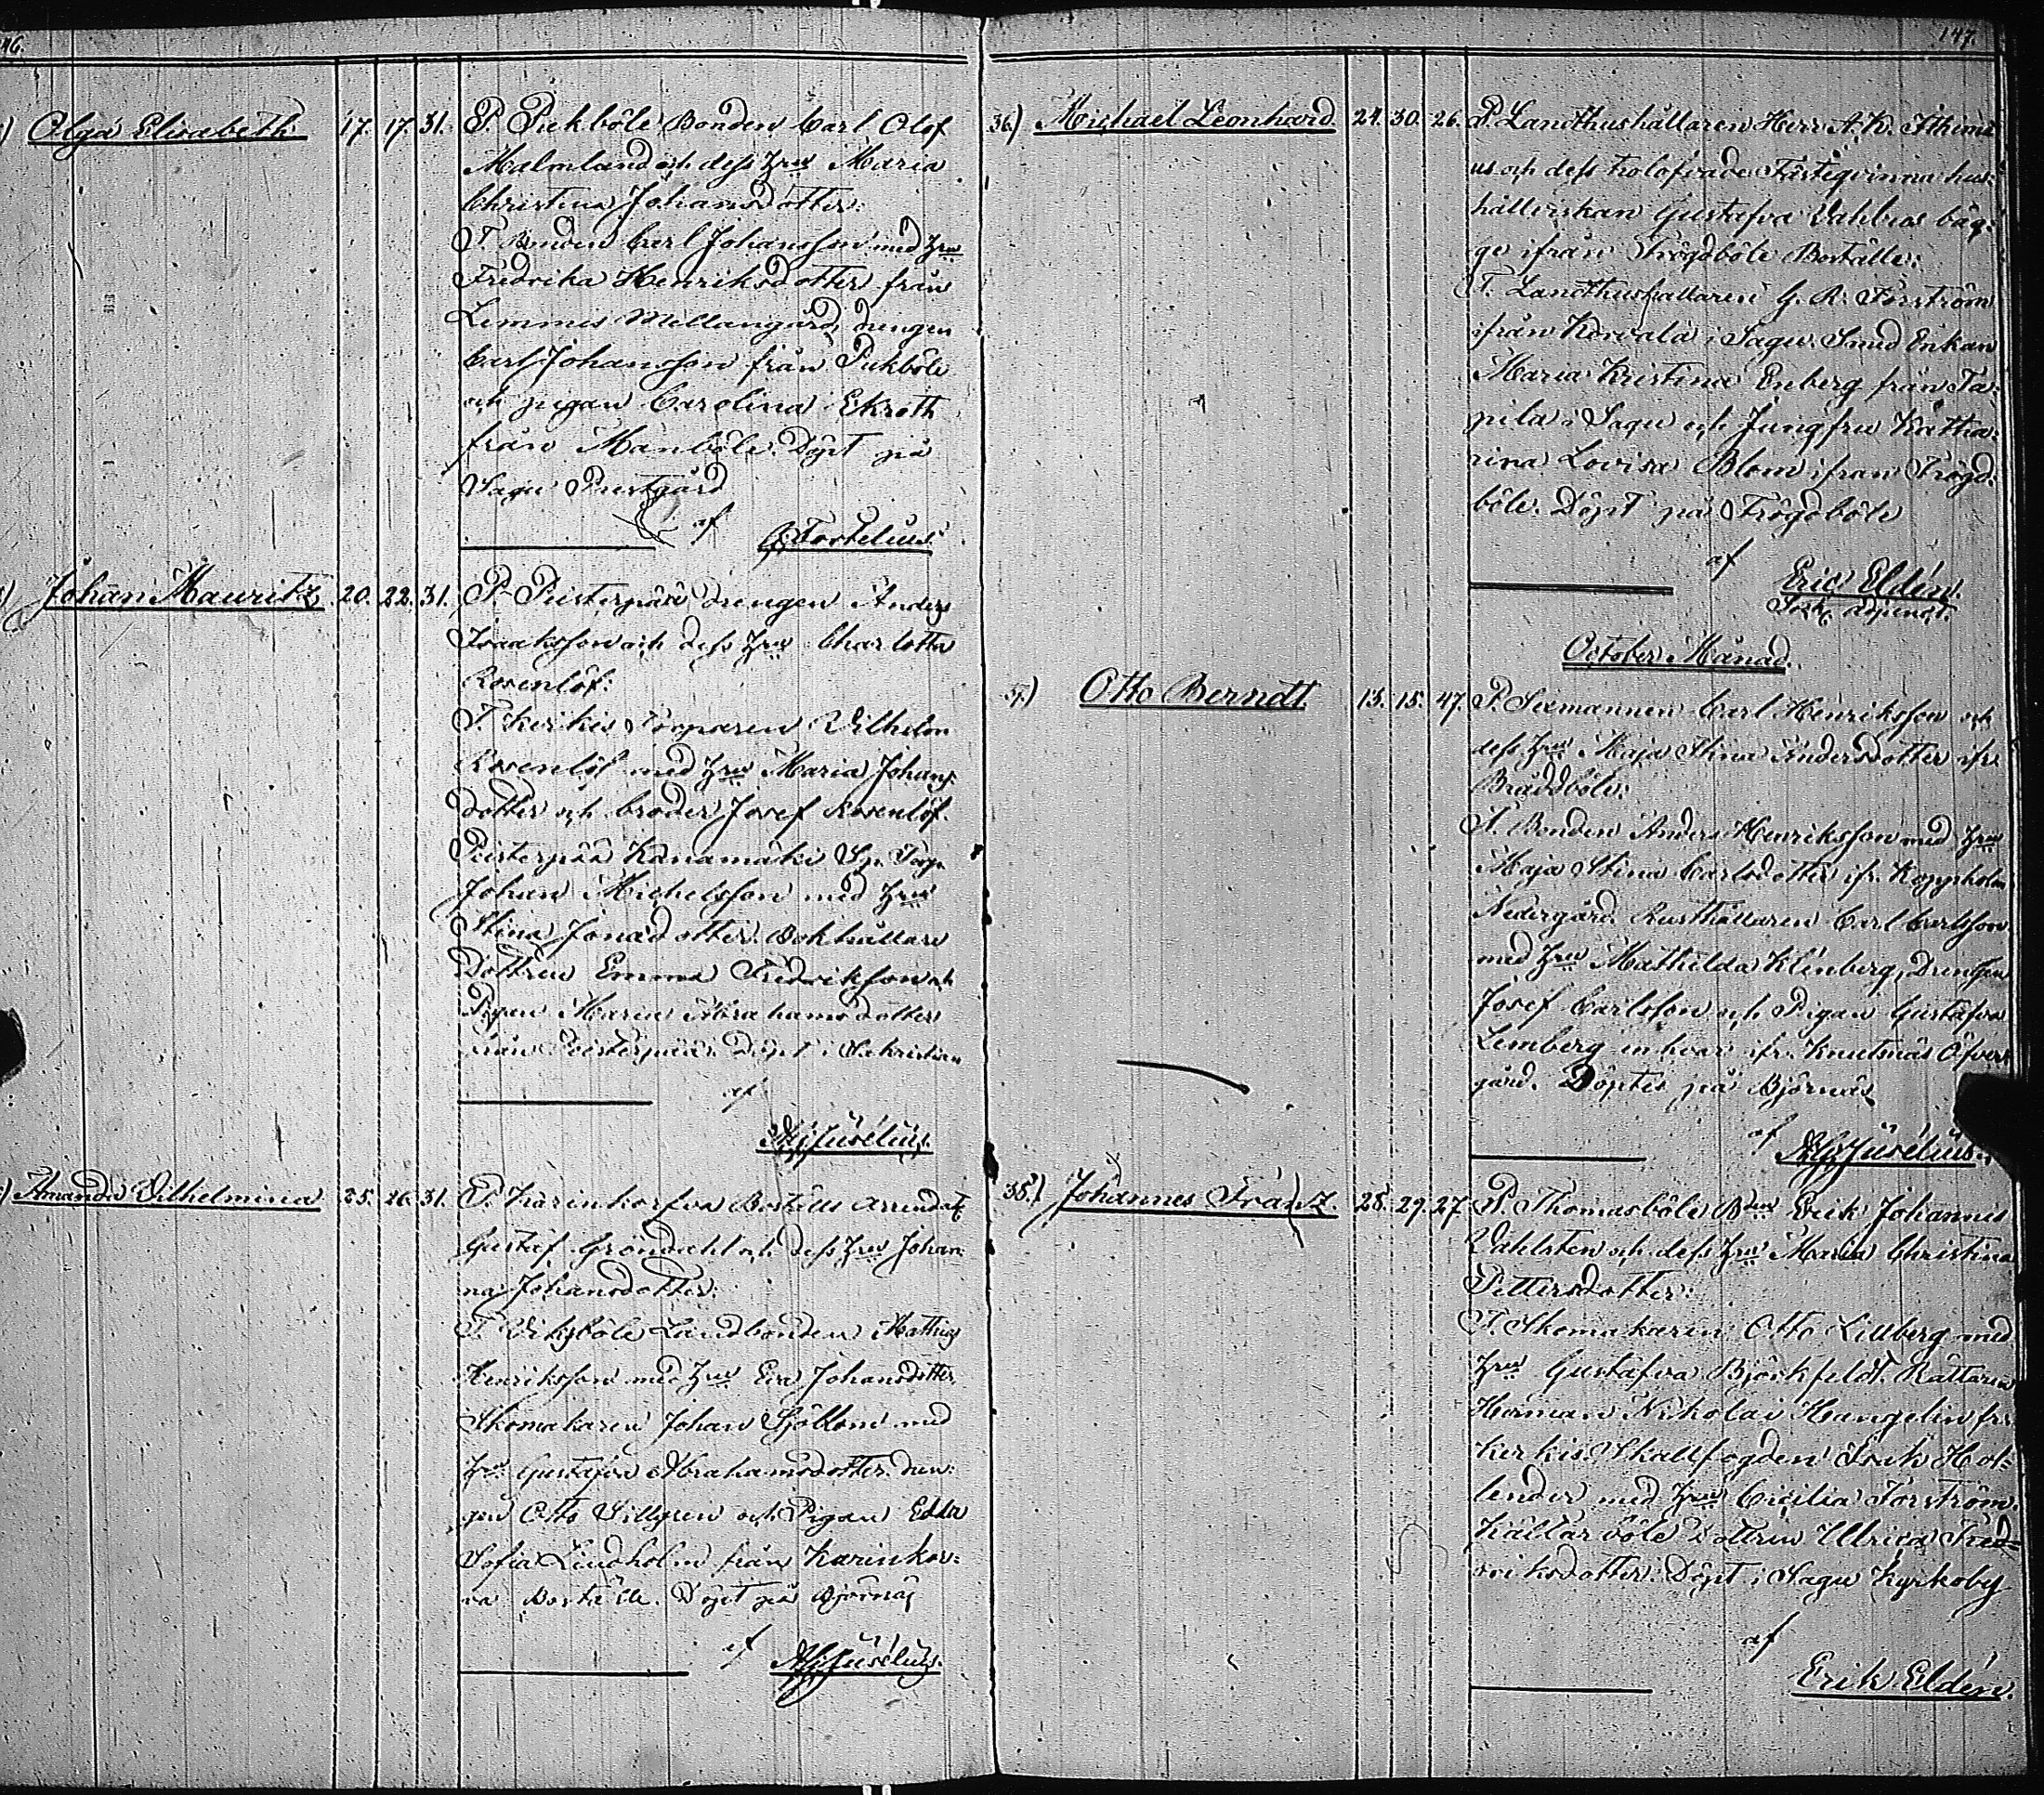 146.
Olga Elisabeth. 17. 17. 31. P. Pukböle Bonden Carl Olof
Malmlund och dess hu Maria
Christina Johansdotter.
T. Bonden Carl Johansson med hu
Fredrika Henriksdotter från
Lemmes Mellangård, drengen
Carl Johansson från Pukböle
och pigan Carolina Ekroth
från Manböle. Döpt på
Sagu Prestgård
af Fortelius.
Johan Mauritz. 20. 22. 31. P. drengen Anders
Isaaksson och dess hu Charlotta
Rosenlöf.
T. Kerkis Torparen Vilhelm
Rosenlöf med hu Maria Johans
dotter och broder Josef Rosenlöf.
Torp.
Johan Michelsson med hu
Stina Jonasdotter. Bokhållare
Dottren Emma Fredriksson och
Pigan Maria Abrahamsdotter
från Döpt i Sakristian
af
Juselius.
Amanda Vilhelmina 25. 26. 31. P. Karinkorfva Boställs
Gustaf Gröndahl och dess hu Johan
na Johansdotter.
T. Viksböle Landbonden Mattias
Henriksson med hu Eva Johansdotter
Skomakaren Johan Sjöblom med
hu Gustafva Abrahamsdotter. dren:
gen Otto Sillgren och Pigan Edla
Sofia Lindholm från Karinkor:
va Boställe. Döpt på Björnäs
af Juselius.
147.
36.) Michael Leonhard. 24. 30. 26. P. Landthushållaren Herr A. K.
us och dess trolofvade Fästeqvinna hus:
hållerskan Gustafva Dahlros bäg:
ge ifrån Frögdböle Boställe.
T. Landthushållaren G. R. Forström
ifrån Kervala i Sagu. Smed Enkan
Maria Kristina Enberg från Ta:
pila i Sagu och Jungfru Katha:
rina Lovisa Blom ifrån Frögd:
böle. Döpt på Frögdböle
af
Eric Eldén.
Adjunct.
October Månad.
Otto Berndt. 13. 15. 47. P. Sexmannen Carl Henriksson och
dess hu Maja Stina Andersdotter ifr.
Bräddböle.
T. Bonden Anders Henriksson med hu
Maja Stina Carlsdotter ifr. Kopparholm
Nedergård. Rusthållaren Carl Carlsson
med hu Mathilda Klinberg, Drengen
Josef Carlsson och Pigan Gustafva
Lemberg ifr. Knutnäs Öfver
gård. Döptes på Björnäs
af Juselius.
35.) Johannes Frantz. 28. 29. 27. P. Thomasböle Erik Johannes
Dahlsten och dess hu Maria Christina
Pettersdotter.
T. Skomakaren Otto Lillberg med
hu Gustafva Björkfeldt. Rättaren
Herman Nikolai Hangelin fr.
Kerkis. Skallfogden Hol:
lender med hu Cicilia Forström.
Källarböle Dottren Ullrica Fred=
riksdotter. Döpt i Sagu Kyrkoby
af
Erik Eldén.